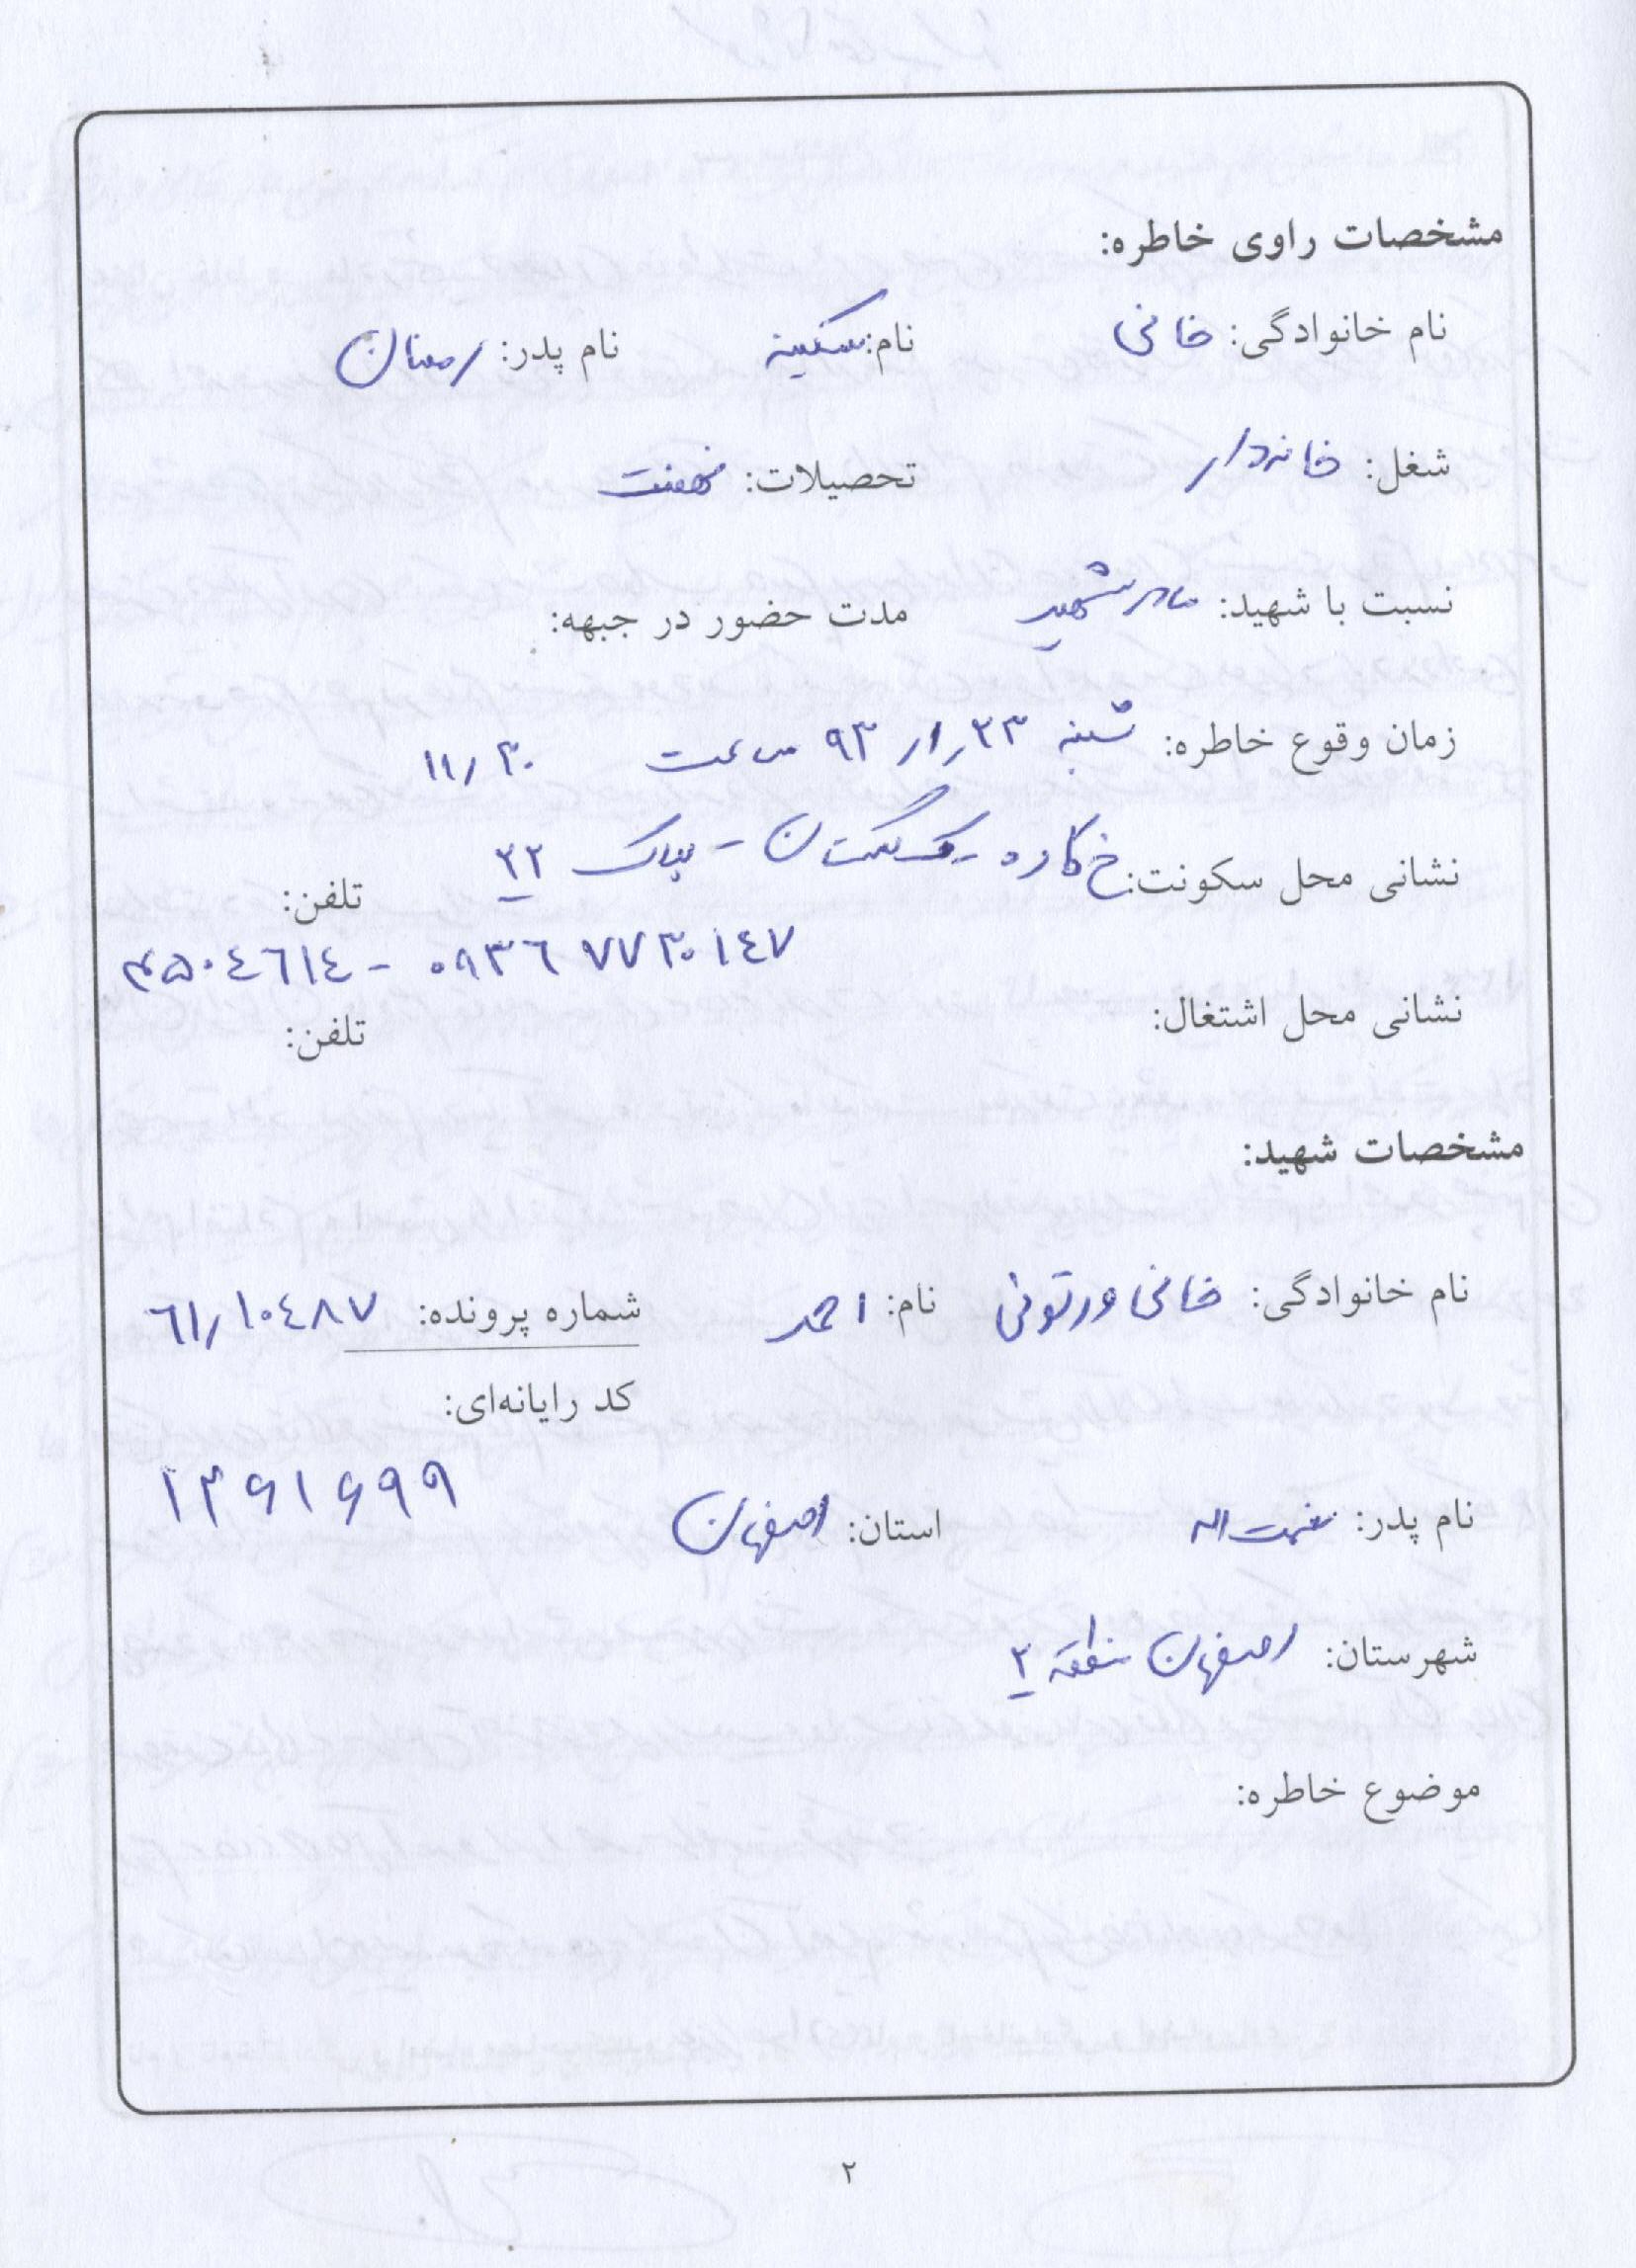 مشخصات راوی خاطره:
نام خانوادگی: خانی نام: سکینه نام پدر: رمضان
شغل: خانه‌دار تحصیلات: نهضت
نسبت با شهید: مادر شهید مدت حضور در جبهه:
زمان وقوع خاطره: شنبه ۲۳/۱/۹۳ ساعت ۱۱/۳۰
نشانی محل سکونت: خ کاوه - گلستان - پلاک ۲۲ تلفن:
۰۹۳۶۷۷۳۰۱۴۷ - ۳۴۵۰۴۶۱۴
نشانی محل اشتغال: تلفن:
مشخصات شهید:
نام خانوادگی: خانی ورتونی نام: احمد شماره پرونده: ۶۱/۱۰۴۸۷
کد رایانه‌ای:
۱۳۶۱۶۹۹
نام پدر: نعمت اله استان: اصفهان
شهرستان: اصفهان منطقه ۲
موضوع خاطره:
۲